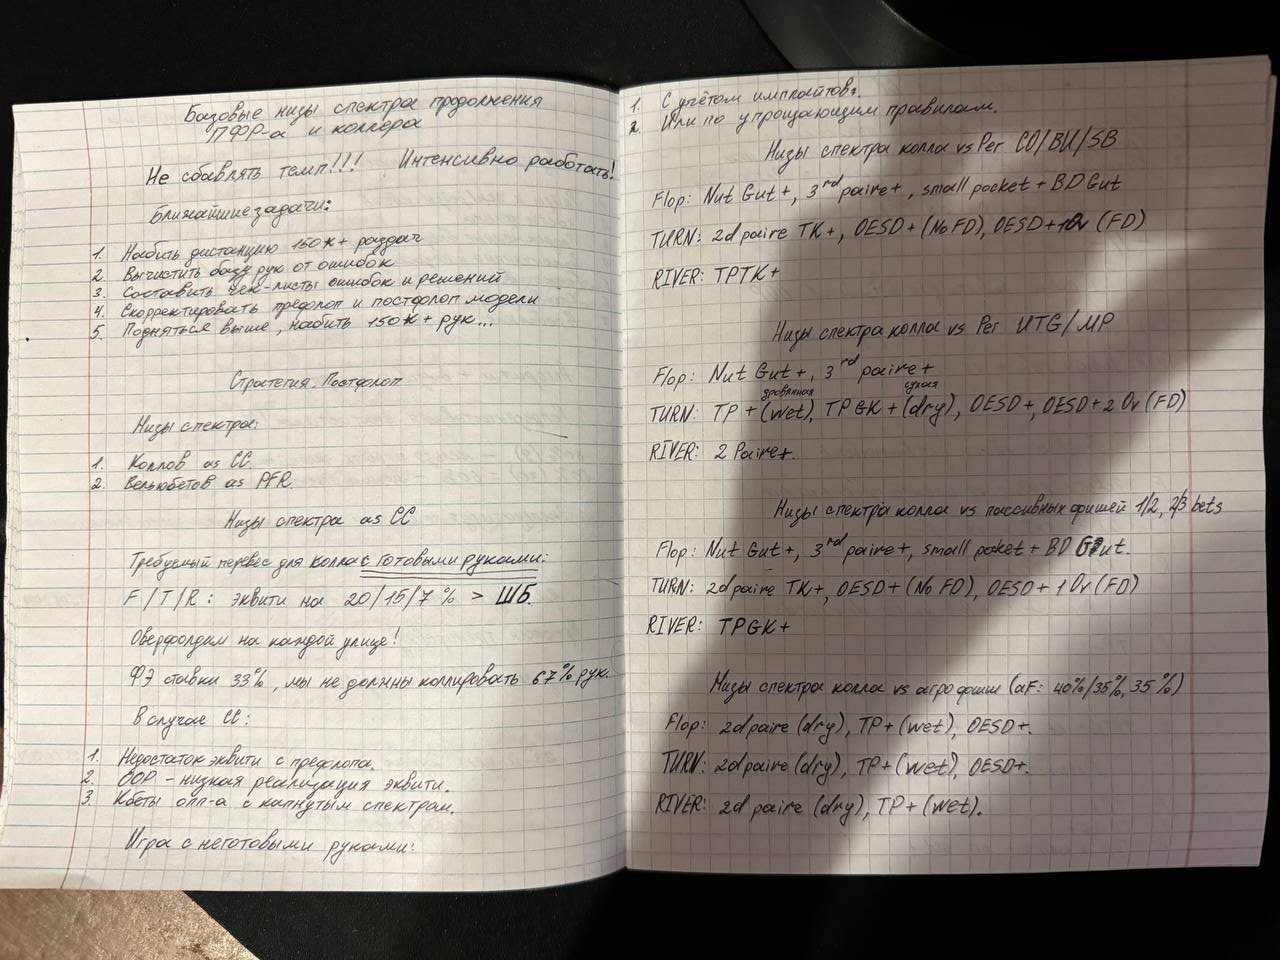 Базовые низы спектра продолжения
ПФР-а и коллера
Не сбавлять темп!!! Интенсивно работать!
Ближайшие задачи:
1. Набить дистанцию 150к+ раздач
2. Вычистить базу рук от ошибок
3. Составить чек-листы ошибок и решений
4. Скорректировать префлоп и постфлоп модели
5. Подняться выше, набить 150к+ рук...
Стратегия. Постфлоп
Низы спектра:
1. Коллов as CC.
2. Вельюбетов as PFR.
Низы спектра as CC
Требуемый перевес для колла с готовыми руками:
F/T/R: эквити на 20/15/7% > ШБ.
Оверфолдим на каждой улице!
ФЭ ставки 33%, мы не должны коллировать 67% рук.
В случае CC:
1. Недостаток эквити с префлопа.
2. ООР - низкая реализация эквити.
3. Кбеты опп-а с капнутым спектром.
Игра с неготовыми руками:
1. С учётом имплайтов:
2. Или по упрощающим правилам.
Низы спектра колла vs Рег CO/BU/SB
Flop: Nut Gut+, 3rd paire+, small pocket + BD Gut
TURN: 2d paire TK+, OESD+(No FD), OESD+1Ov (FD)
RIVER: TPTK+
Низы спектра колла vs Рег UTG/MP
Flop: Nut Gut+, 3rd paire+
дровяная сухая
TURN: TP+(wet), TPGK+(dry), OESD+, OESD+2 Ov (FD)
RIVER: 2 Paire+.
Низы спектра колла vs пассивных фишей 1/2, 2/3 bets
Flop: Nut Gut+, 3rd paire+, small pocket + BD Gut.
TURN: 2d paire TK+, OESD+(No FD), OESD+1Ov (FD)
RIVER: TPGK+
Низы спектра колла vs агро фиши (aF: 40%/35%, 35%)
Flop: 2d paire (dry), TP+(wet), OESD+.
TURN: 2d paire (dry), TP+(wet), OESD+.
RIVER: 2d paire (dry), TP+(wet).